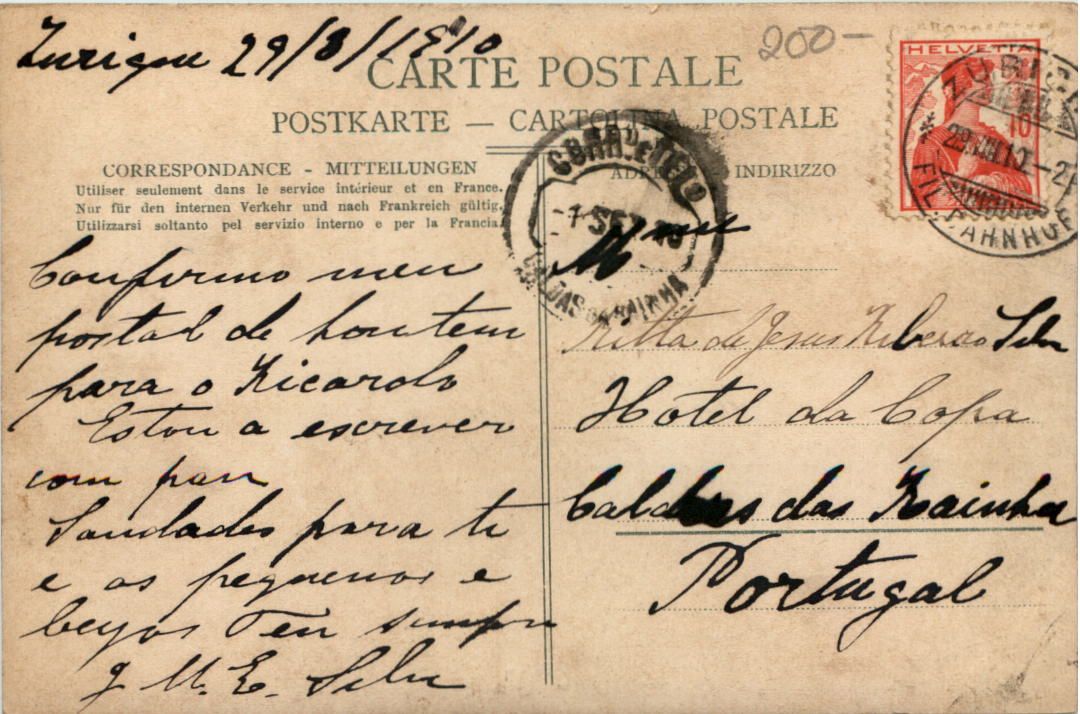 Zurigue 29/8/1910
200-
CARTE POSTALE
POSTKARTE — CARTOLINA POSTALE
CORRESPONDANCE - MITTEILUNGEN
Utiliser seulement dans le service intérieur et en France.
Nur für den internen Verkehr und nach Frankreich gültig.
Utilizzarsi soltanto pel servizio interno e per la Francia.
Confirmo meu
postal de hontem
para o Ricardo
Estou a escrever
com pau
Saudades para ti
e os pequenos e
beijos Teu sempre
J. M. E. Silva
INDIRIZZO
HELVETIA
10
ZURICH
29.VIII.10
FIL. BAHNHOF
CORR. E TELO
1 SET 10
CALDAS DA RAINHA
Mme
Ritta de Jesus Ribeiro Silva
Hotel da Copa
Caldas das Rainha
Portugal